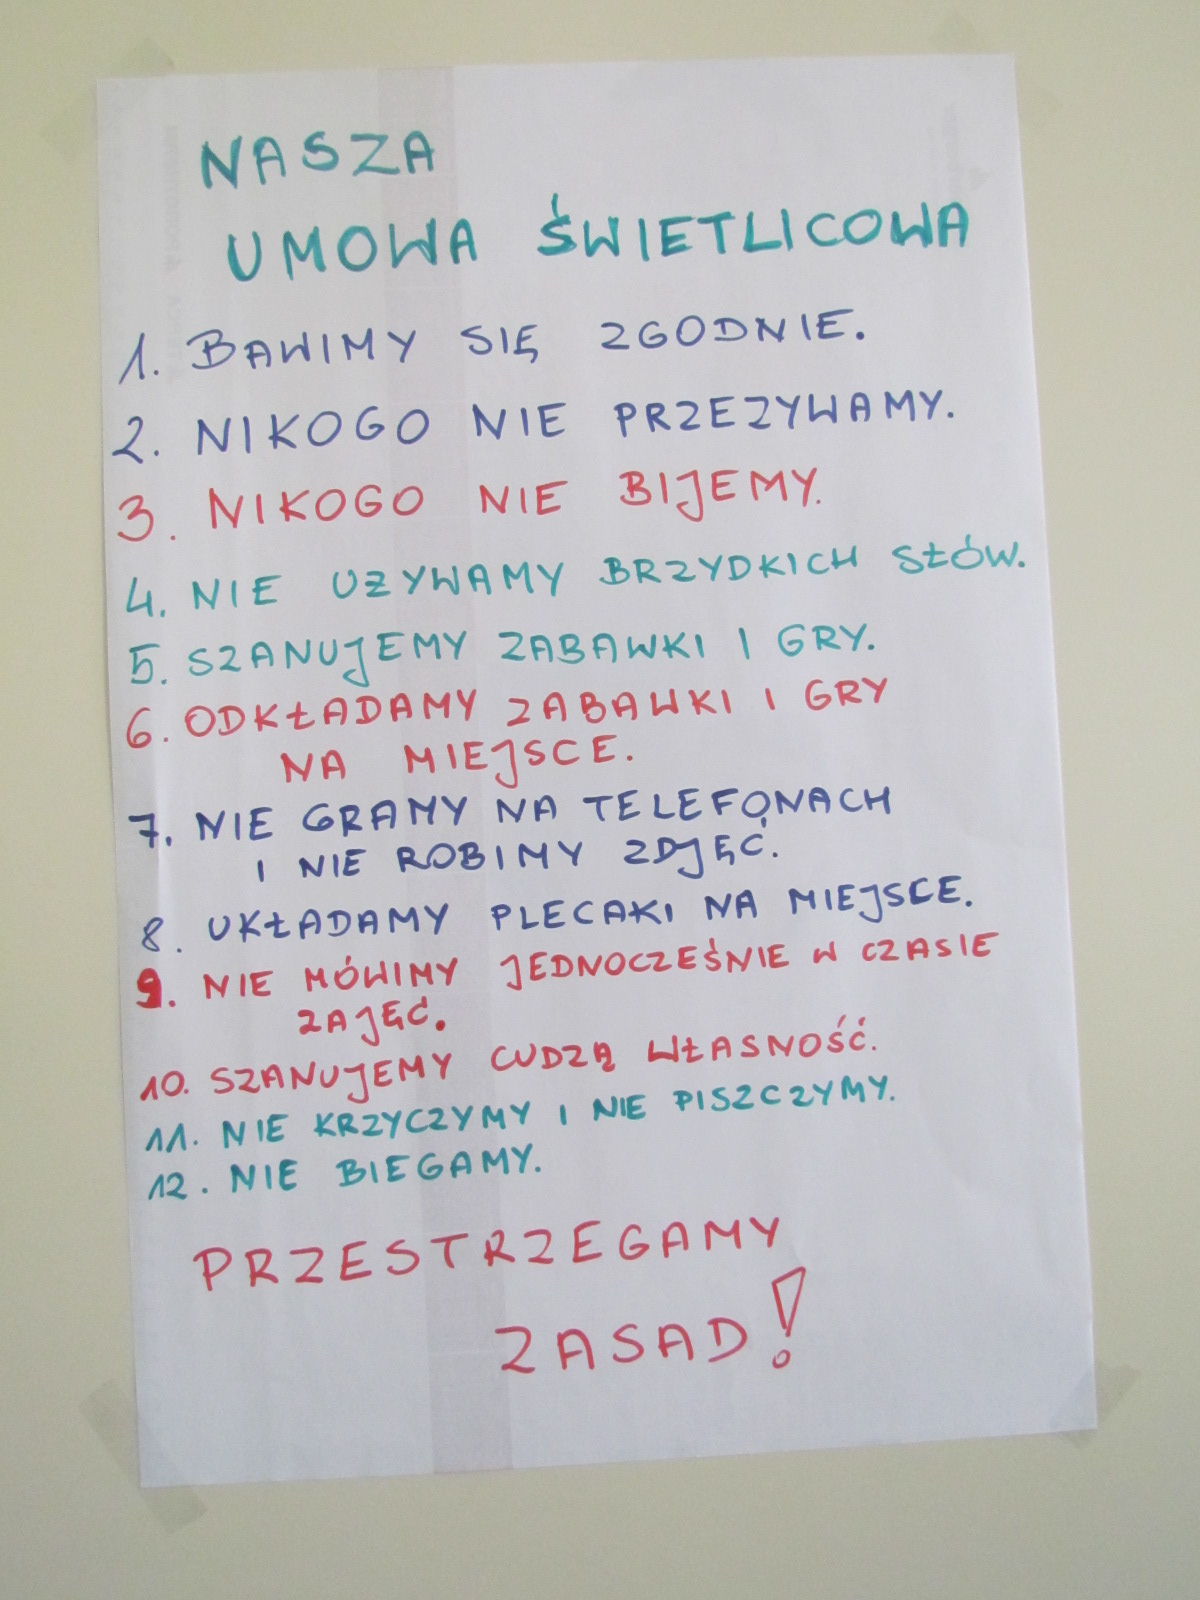 NASZA
UMOWA ŚWIETLICOWA
1. BAWIMY SIĘ ZGODNIE.
2. NIKOGO NIE PRZEZYWAMY.
3. NIKOGO NIE BIJEMY.
4. NIE UŻYWAMY BRZYDKICH SŁÓW.
5. SZANUJEMY ZABAWKI I GRY.
6. ODKŁADAMY ZABAWKI I GRY
NA MIEJSCE.
7. NIE GRAMY NA TELEFONACH
I NIE ROBIMY ZDJĘĆ.
8. UKŁADAMY PLECAKI NA MIEJSCE.
9. NIE MÓWIMY JEDNOCZEŚNIE W CZASIE
ZAJĘĆ.
10. SZANUJEMY CUDZĄ WŁASNOŚĆ.
11. NIE KRZYCZYMY I NIE PISZCZYMY.
12. NIE BIEGAMY.
PRZESTRZEGAMY
ZASAD!